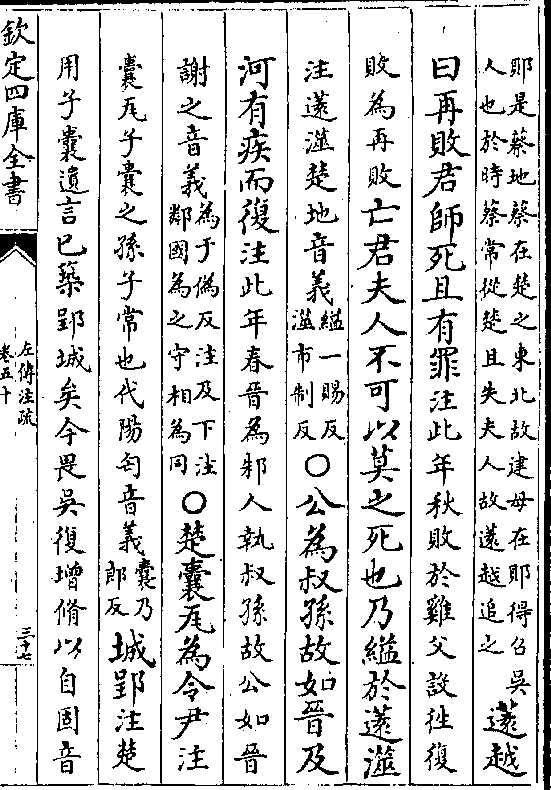 郹是蔡地蔡在楚之東北故建母在郹得召吳
人也於時蔡常從楚且失夫人故薳越追之
薳越
曰再敗君師死且有罪注此年秋敗於雞父設往復
敗為再敗亡君夫人不可以莫之死也乃縊於薳澨
注薳澨楚地音義
縊一賜反
澨市制反
○公為叔孫故如晉及
河有疾而復注此年春晉為邾人執叔孫故公如晉
謝之音義
為于偽反注及下注
鄰國為之守相為同
○楚囊瓦為令尹注
囊瓦子囊之孫子常也代陽匄音義
囊乃
郎反
城郢注楚
用子囊遺言已築郢城矣今畏吳復增脩以自固音
欽定四庫全書
左傳注疏
卷五十
三十七